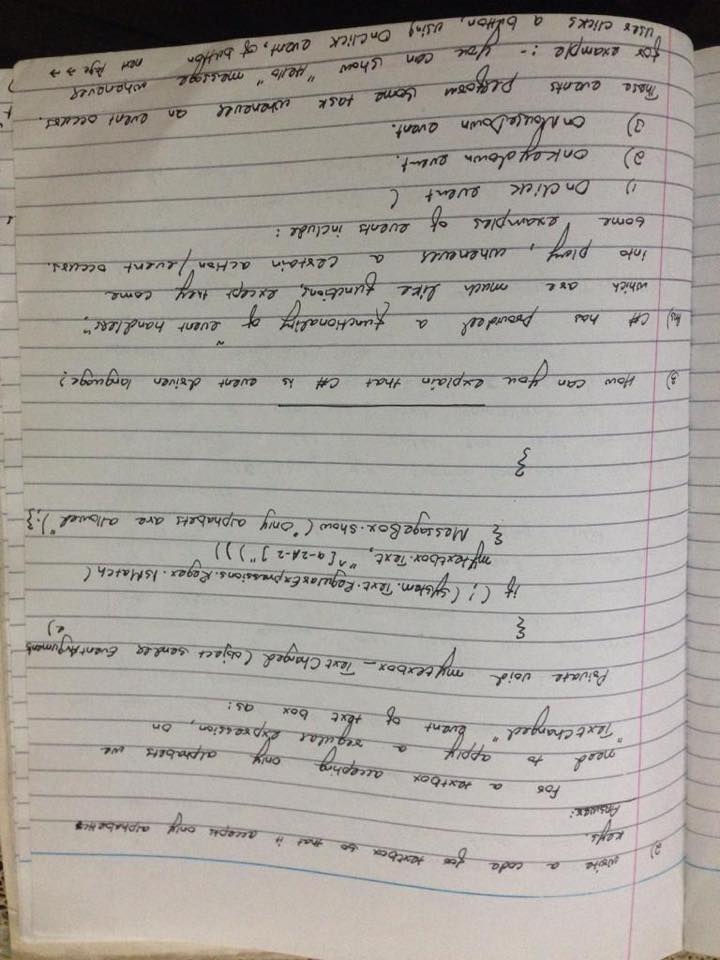 2) write a code for textbox so that it accepts only alphabetics
keys.
Answer:
For a textbox accepting only alphabets we
need to apply a regular expression, on
"TextChanged" event of text box as:
Private void mytexbox_TextChanged (object sender, EventArguments e)
{
if (!(System.Text.RegularExpressions.Regex.IsMatch(
mytextbox.Text, "^[a-zA-Z]")))
{ MessageBox.Show("Only alphabets are allowed"); }
}
3) How can you explain that C# is event driven language?
Ans) C# has provided a functionality of "event handlers",
which are much like functions, except they come
into play, whenever a certain action/event occurs.
Some examples of events include:
1) OnClick event (
2) OnKeydown event.
3) OnMouseDown event.
These events perform some task whenever an event occurs.
for example :- you can show "Hello" message whenever
user clicks a button, using OnClick event, of button
next Page →→